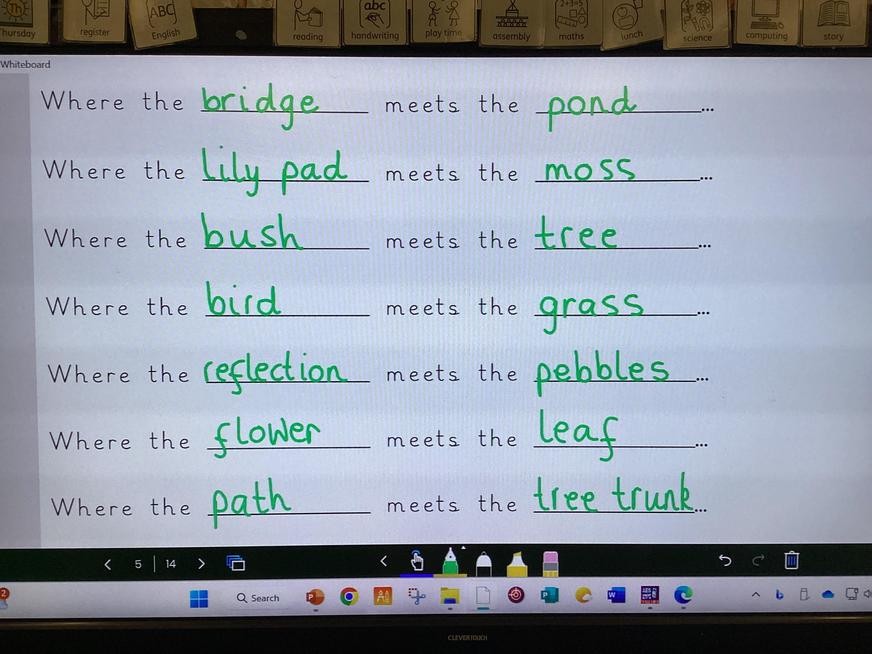 Thursday register ABC English reading abc handwriting play time assembly 2+3=5 maths lunch science computing story
Whiteboard
Where the bridge meets the pond...
Where the lily pad meets the moss...
Where the bush meets the tree...
Where the bird meets the grass...
Where the reflection meets the pebbles...
Where the flower meets the leaf...
Where the path meets the tree trunk...
5 | 14
2 Search
CLEVERTOUCH